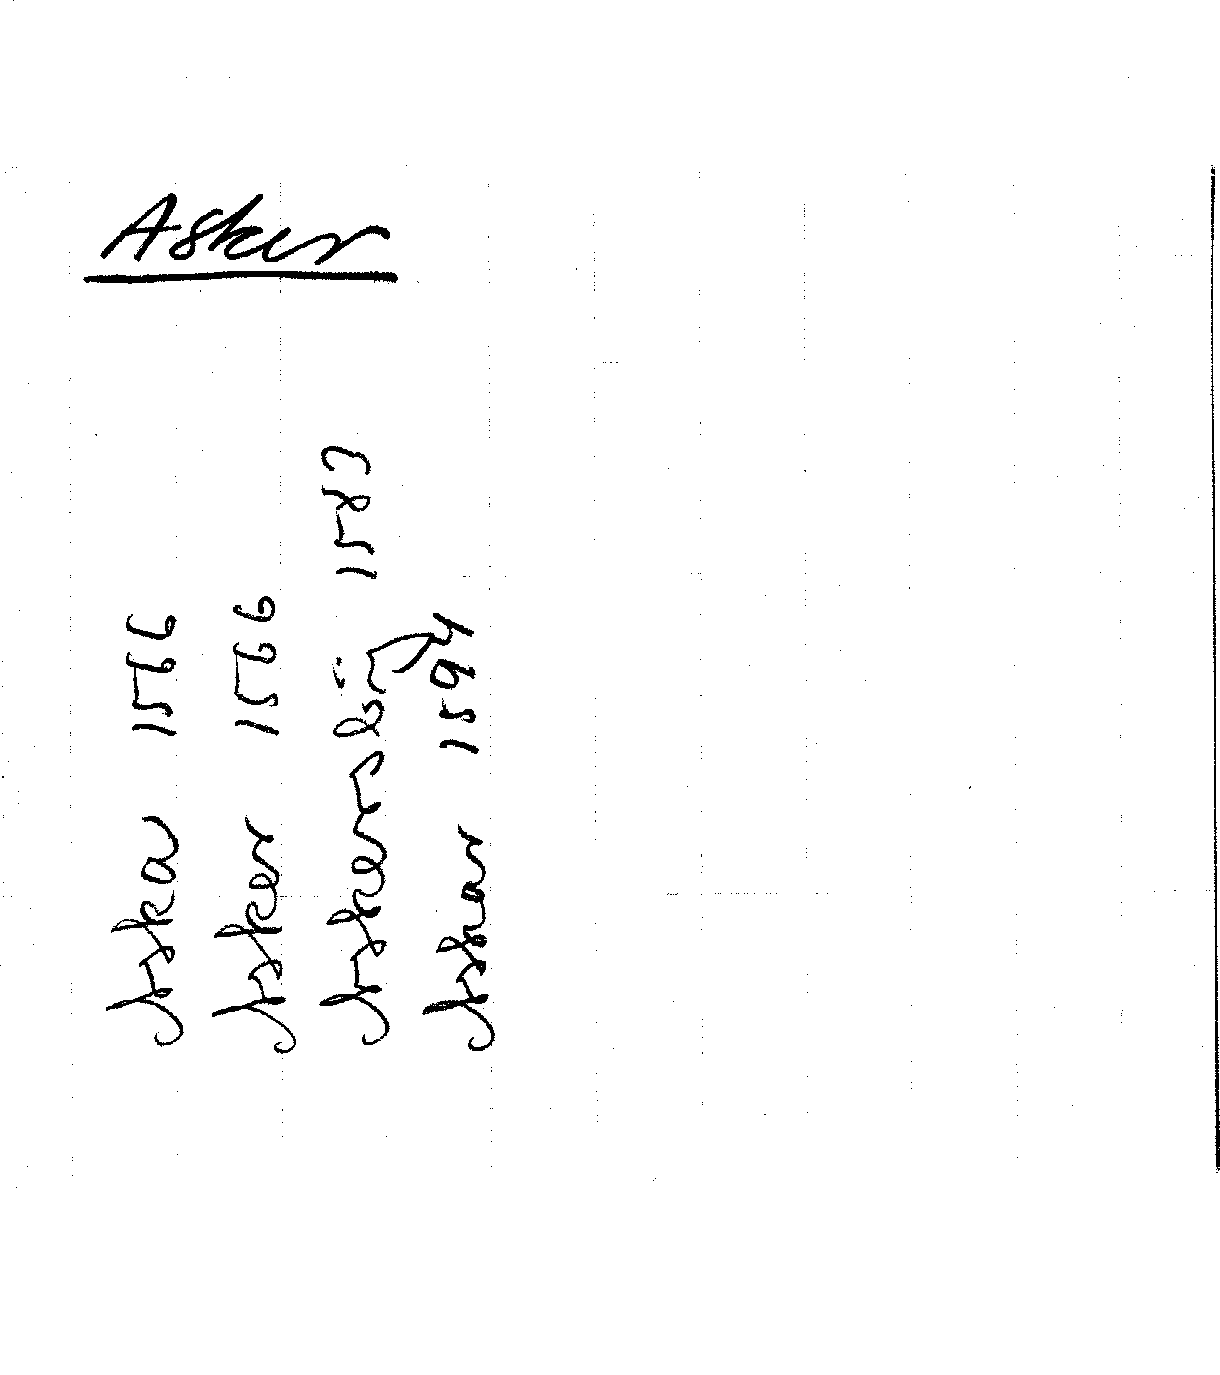 Asker
Aska 1566
Asker 1566
Askersbÿ 1583
Askar 1594